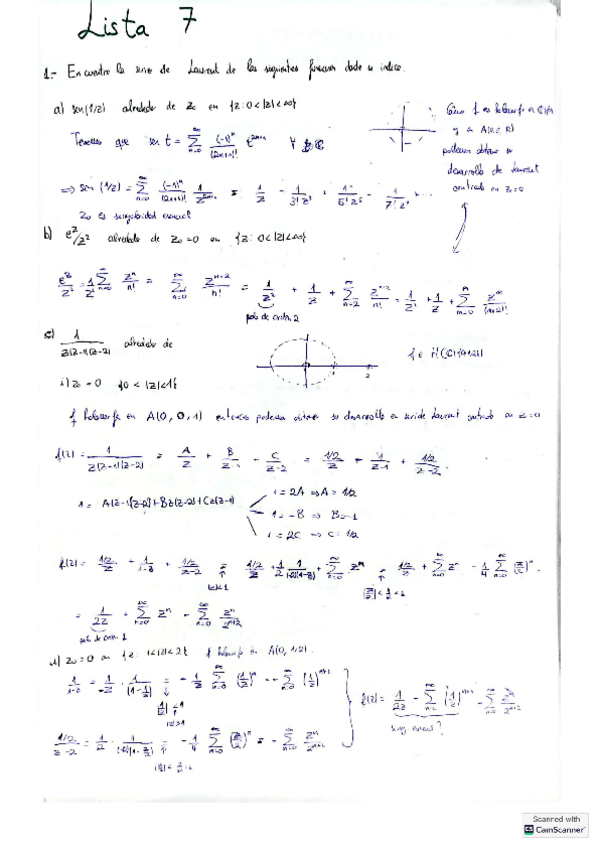 Lista 7
1.- Encuentre la serie de Laurent de las siguientes funciones donde se indica.
a) sen(1/z) alrededor de z₀ en {z: 0<|z|<∞}
Tenemos que sen t = ∑_{n=0}^{∞} (-1)^n/(2n+1)! t^{2n+1} ∀
y a A(0,∞)
podemos obtener su
desarrollo de Laurent
centrado en z=0
⇒ sen(1/z) = ∑_{n=0}^{∞} (-1)^n/(2n+1)! 1/z^{2n+1} = 1/z - 1/3!z³ + 1/5!z⁵ - 1/7!z⁷ ...
z₀ es singularidad esencial
b) e^z/z² alrededor de z₀=0 en {z: 0<|z|<∞}
e^z/z² = 1/z² ∑_{n=0}^{∞} z^n/n! = ∑_{n=0}^{∞} z^{n-2}/n! = 1/z² + 1/z + ∑_{n=2}^{∞} z^{n-2}/n! = 1/z² + 1/z + ∑_{m=0}^{∞} z^m/(m+2)!
polo de orden 2
c) 1/z(z-1)(z-2) alrededor de
1 2
i) z₀ = 0 {0 < |z| < 1}
f holomorfa en A(0,0,1) entonces podemos obtener su desarrollo en serie de Laurent centrado en z=0
f(z) = 1/z(z-1)(z-2) = A/z + B/z-1 + C/z-2 = 1/2/z + 1/z-1 + 1/2/z-2.
1 = A(z-1)(z-2) + Bz(z-2) + Cz(z-1)
1 = 2A ⇒ A = 1/2
1 = -B ⇒ B = -1
1 = 2C ⇒ C = 1/2
f(z) = 1/2/z + 1/1-z + 1/2/z-2 = 1/2/z + 1/2 1/(-2)(1-z/2) + ∑_{n=0}^{∞} z^n = 1/2/z + ∑_{n=0}^{∞} z^n - 1/4 ∑_{n=0}^{∞} (z/2)^n.
|z|<1
= 1/2z + ∑_{n=0}^{∞} z^n - ∑_{n=0}^{∞} z^n/2^{n+2}
polo de orden 1
ii) z₀ = 0 en {z: 1<|z|<2} f holomorfa en A(0,1,2).
1/1-z = 1/-z · 1/(1-1/z) = -1/z ∑_{n=0}^{∞} (1/z)^n = -∑_{n=0}^{∞} (1/z)^{n+1}
|1/z|<1
|z|>1
f(z) = 1/2z - ∑_{n=0}^{∞} (1/z)^{n+1} - ∑_{n=0}^{∞} z^n/2^{n+2}
sing esencial?
1/2/z-2 = 1/2 · 1/(-2)(1-z/2) = -1/4 ∑_{n=0}^{∞} (z/2)^n = -∑_{n=0}^{∞} z^n/2^{n+2}
Scanned with
CamScanner